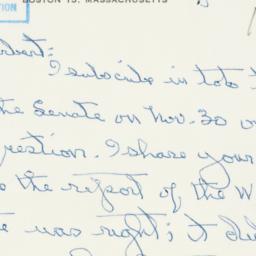 TION
BOSTON 15, MASSACHUSETTS
rbert:
I subscribe in toto t
the Senate on Nov. 30 o
question. I share your
o the report of the W
te was right; it du